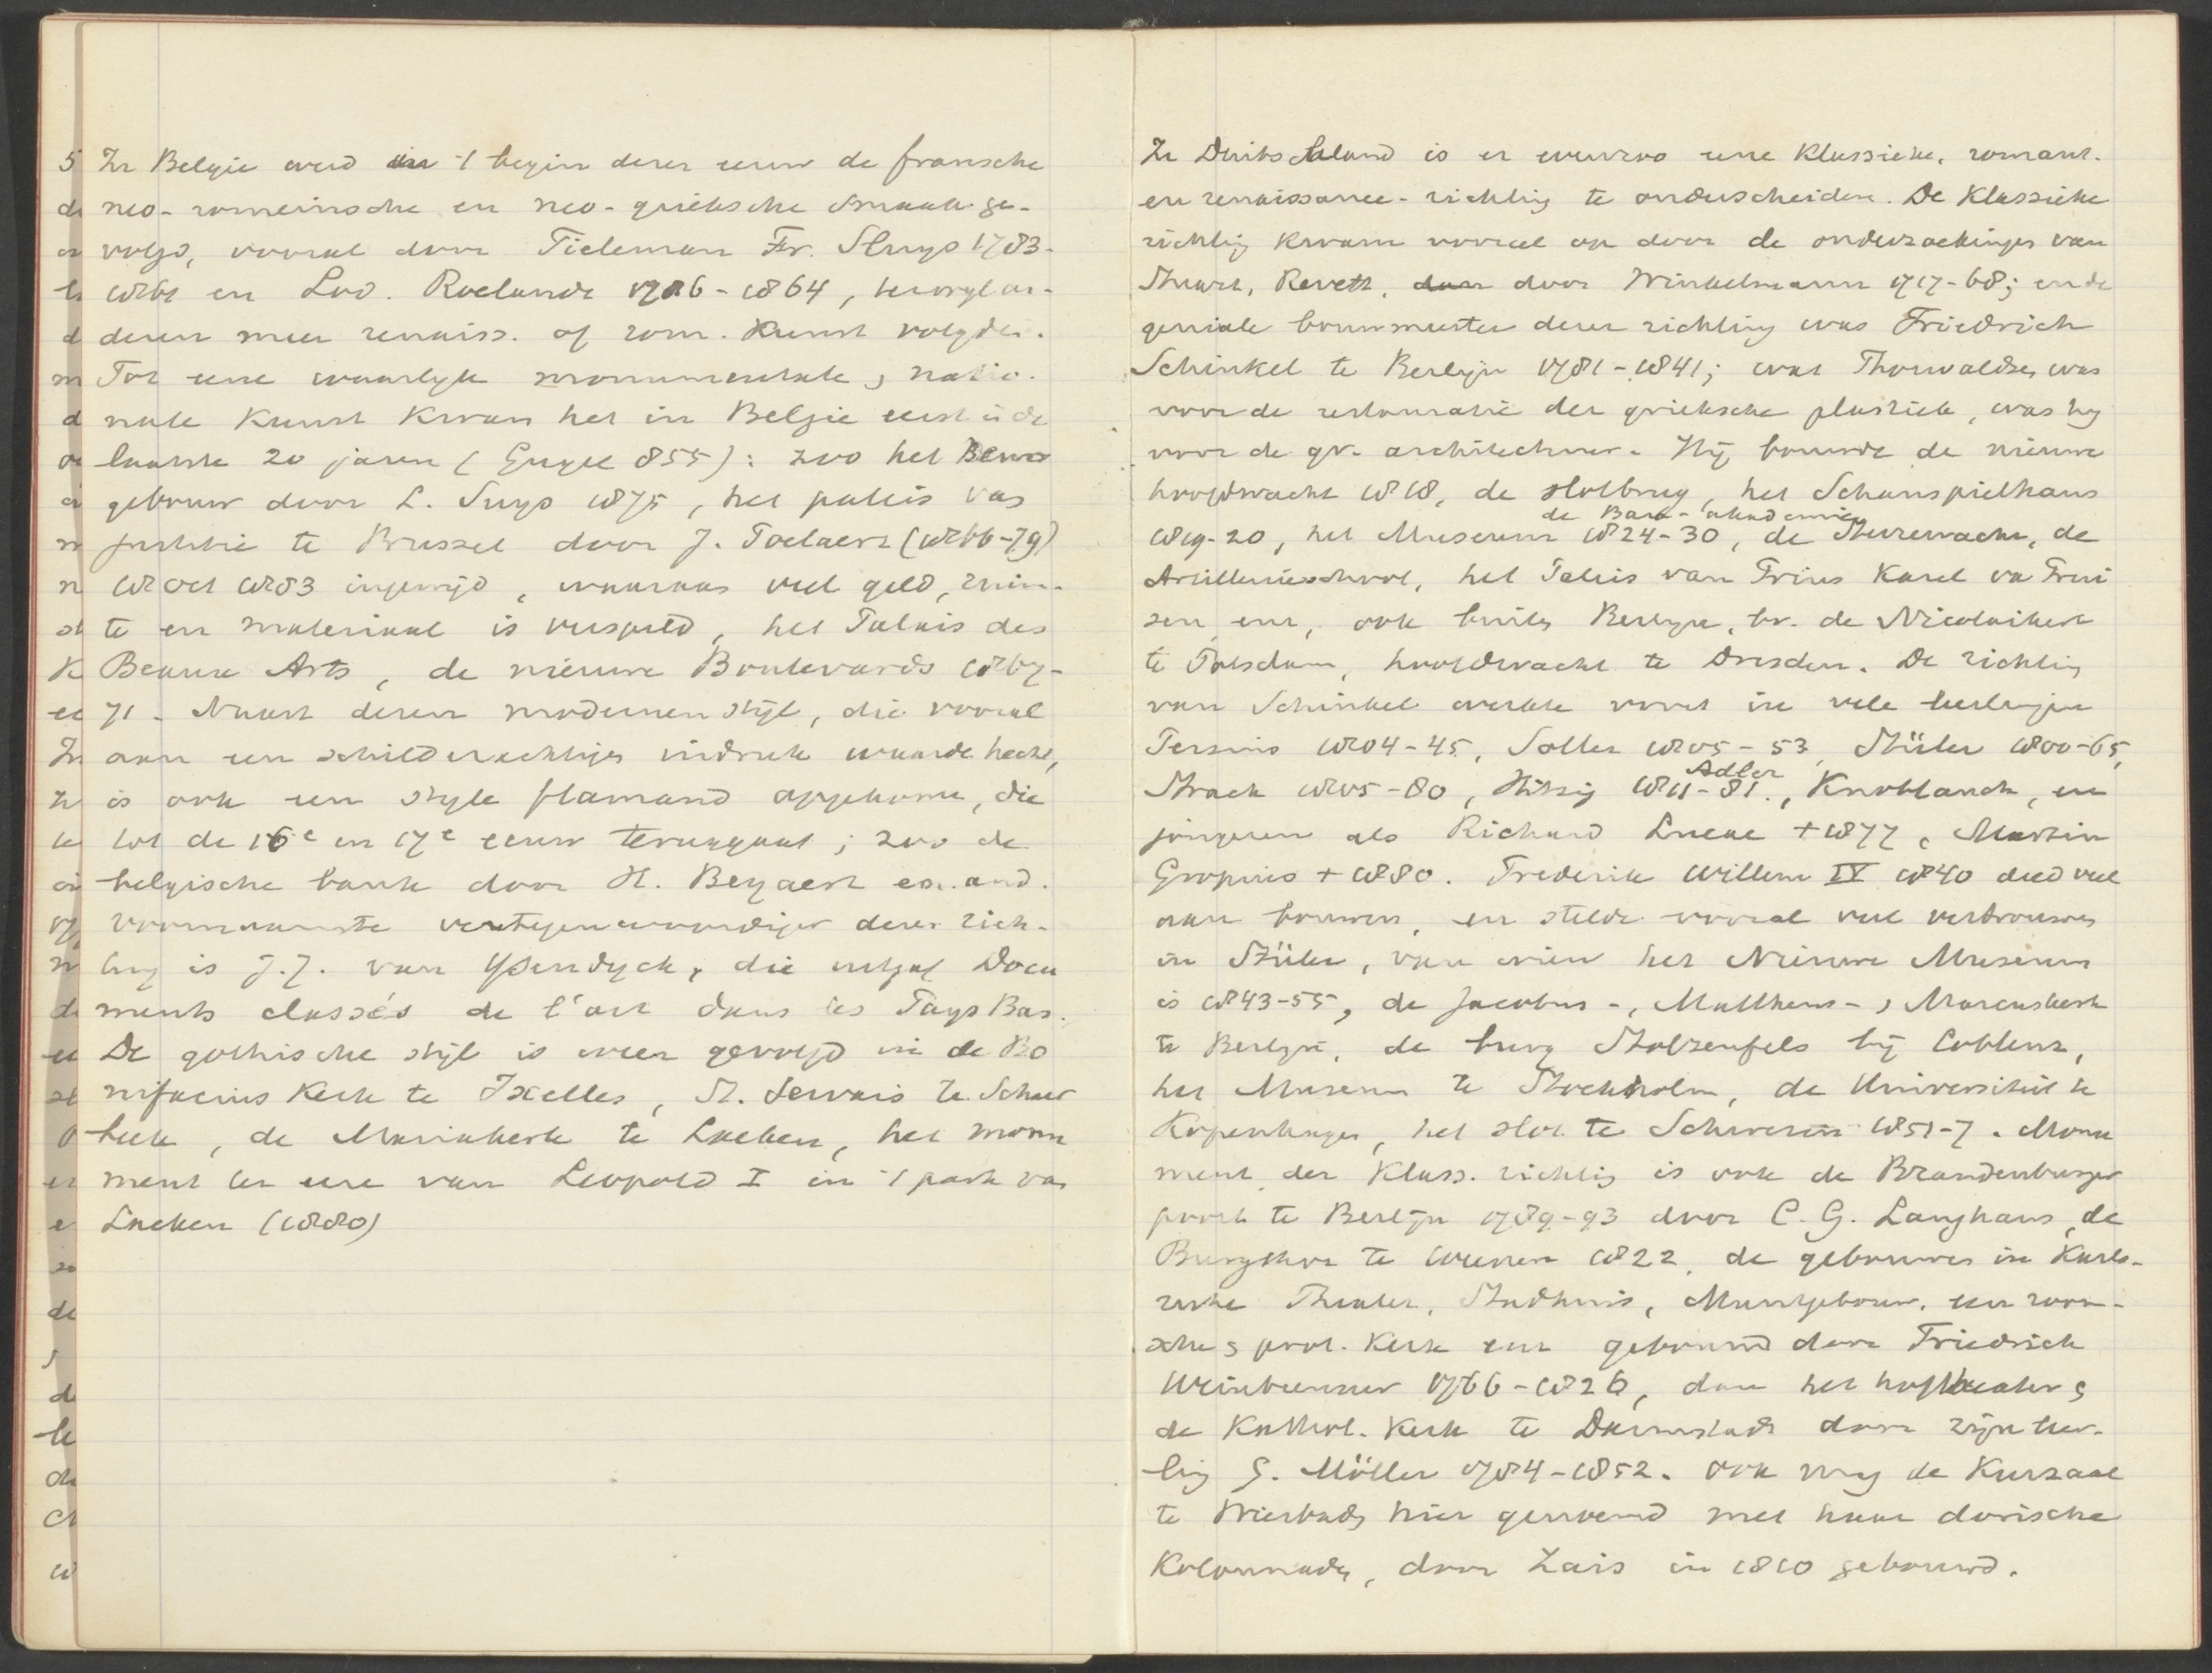 In Belgie werd in 't begin dezer eeuw de fransche
neo-romeinsche en neo-grieksche smaak ge-
volgd, vooral door Tieleman Fr. Sluys 1783-
1861 en Lod. Roelandt 1786-1864, terwyl an-
deren meer renaiss. of rom. Kunst volgden.
Tot eene waarlyk monumentale, natio-
nale Kunst kwam het in Belgie eerst in de
laatste 20 jaren (Gugel 855): zoo het Beurs
gebouw door L. Suys 1875, het paleis van
justitie te Brussel door J. Poelaert (1866-79)
15 Oct 1883 ingewijd, waaraan veel geld, ruim-
te en materiaal is verspild, het Palais des
Beaux Arts, de nieuwe Boulevards 1867-
71. Naast dezen modernen stijl, die vooral
aan een schilderachtigen indruk waarde hecht,
is ook een style flamand opgekomen, die
tot de 16e en 17e eeuw teruggaat; zoo de
belgische bank door H. Beyaert en. and.
voornaamste vertegenwoordiger dezer rich-
ting is J.J. van Ysendyck, die uitgaf Docu
ments classés de l'art dans les Pays Bas.
De gothische stijl is weer gevolgd in de Bo
nifacius Kerk te Ixelles, St. Servais te Schaer
beek, de Mariakerk te Laeken, het monu
ment ter eere van Leopold I in 't park van
Laeken (1880)
In Duitschland is er evenzoo eene Klassieke, romant.
en renaissance-richting te onderscheiden. De Klassieke
richting kwam vooral op door de onderzoekingen van
Stuart, Revett, door Winkelmann 1717-68; en de
geniale bouwmeester dezer richting was Friedrich
Schinkel te Berlijn 1781-1841; wat Thorwaldsen was
voor de restauratie der grieksche plastiek, was hy
voor de gr. architectuur. Hij bouwde de nieuwe
hoofdwacht 1818, de slotbrug, het Schauspielhaus
de Bau-akademie
1819-20, het Museum 1824-30, de Sterrewacht, de
Artillerieschool, het Paleis van Prins Karel van Prui
sen enz, ook buiten Berlyn, bv. de Nicolaikerk
te Potsdam, hoofdwacht te Dresden. De richting
van Schinkel werkte voort in vele leerlingen
Persius 1804-45, Soller 1805-53, Stüler 1800-65,
Adler
Strack 1805-80, Hitzig 1811-81., Knoblauch, en
jongeren als Richard Lucae + 1877, Martin
Gropius + 1880. Frederik Willem IV 1840 deed veel
aan bouwen, en stelde vooral veel vertrouwen
in Stüler, van wien het Nieuwe Museum
is 1843-55, de Jacobus-, Mattheus-, Marcuskerk
te Berlyn, de burg Stolzenfels bij Coblenz,
het Museum te Stockholm, de Universiteit te
Kopenhagen, het slot te Schwerin 1851-7. Monu
ment der Klass. richting is ook de Brandenburger
poort te Berlijn 1789-93 door C. G. Langhans, de
Burgthor te Weenen 1822, de gebouwen in Karls-
ruhe Theater, Stadhuis, Muntgebouw, een room-
sche & prot. Kerk enz gebouwd door Friedrich
Weinbrenner 1766-1826, dan het hoftheater &
de Kathol. Kerk te Darmstadt door zijn leer-
ling G. Möller 1784-1852. Ook mag de Kurzaal
te Wiesbaden hier genoemd met haar dorische
Kolonnade, door Zais in 1810 gebouwd.